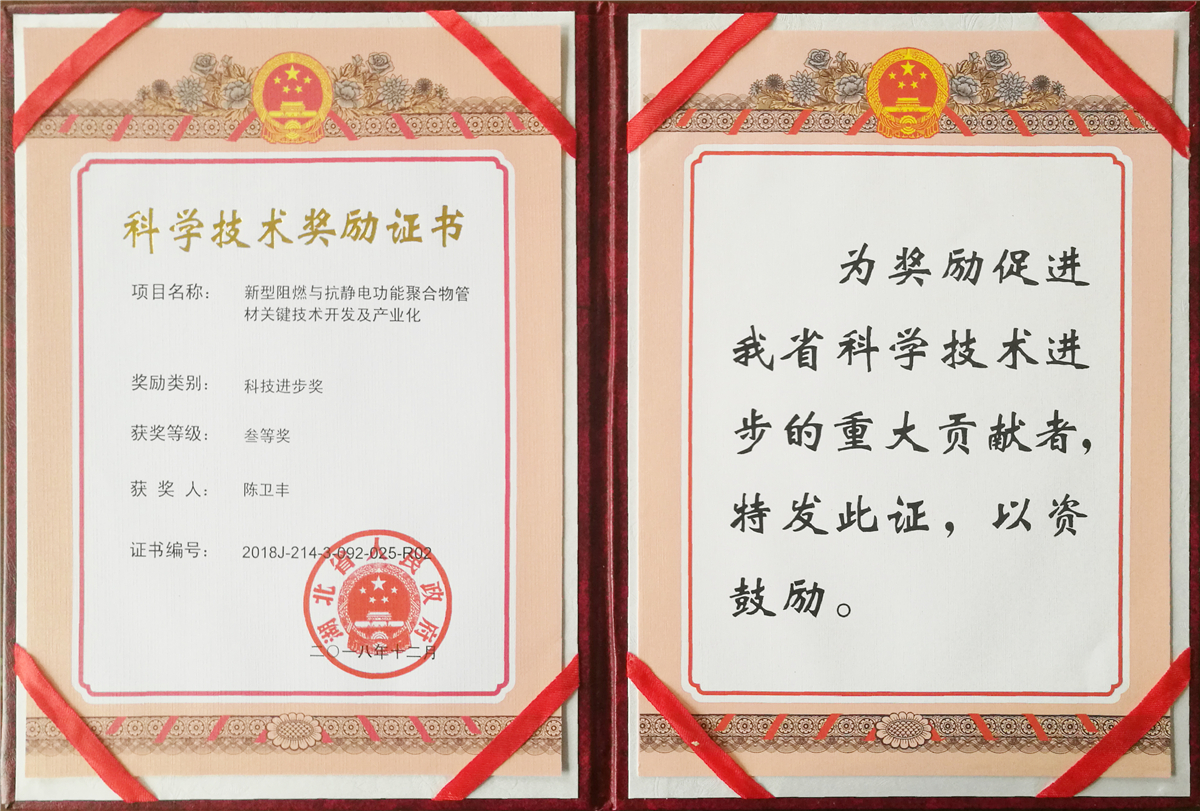 科学技术奖励证书
项目名称： 新型阻燃与抗静电功能聚合物管
材关键技术开发及产业化
奖励类别： 科技进步奖
获奖等级： 叁等奖
获 奖 人： 陈卫丰
证书编号： 2018J-214-3-092-025-R02
湖北省人民政府
二〇一八年十二月
为奖励促进
我省科学技术进
步的重大贡献者，
特发此证，以资
鼓励。